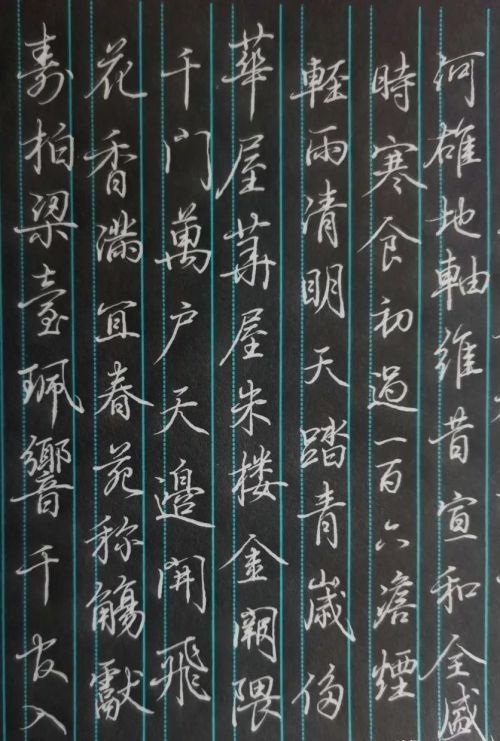 河雄地軸維昔宣和全盛
時寒食初過一百六澹煙
輕雨清明天踏青歲侈
華屋華屋朱楼金闕隈
千門萬户天邊開飛
花香滿宜春苑称觴獻
寿柏梁臺珮響千官入